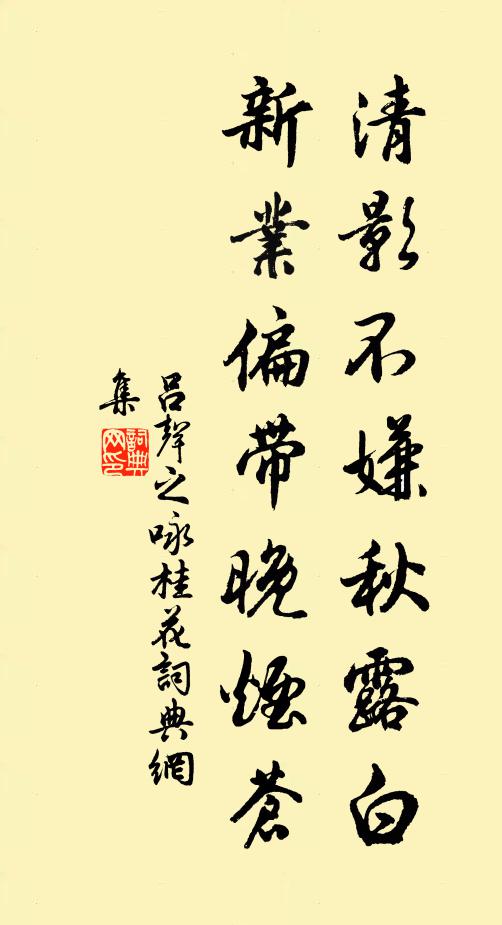 清影不嫌秋露白
新業偏帶晚煙蒼
吕聲之咏桂花詞典網
集
詞典
网印